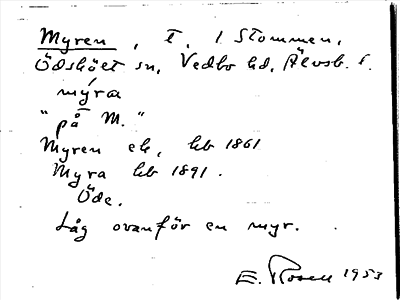 Myren, t. / Stommen,
Ödskölt sn, Vedbo hd, Älvsb. l.
mýra
"på M."
Myren ek, hb 1861
Myra hb 1891.
Öde.
Låg ovanför en myr.
E. Rosell 1953